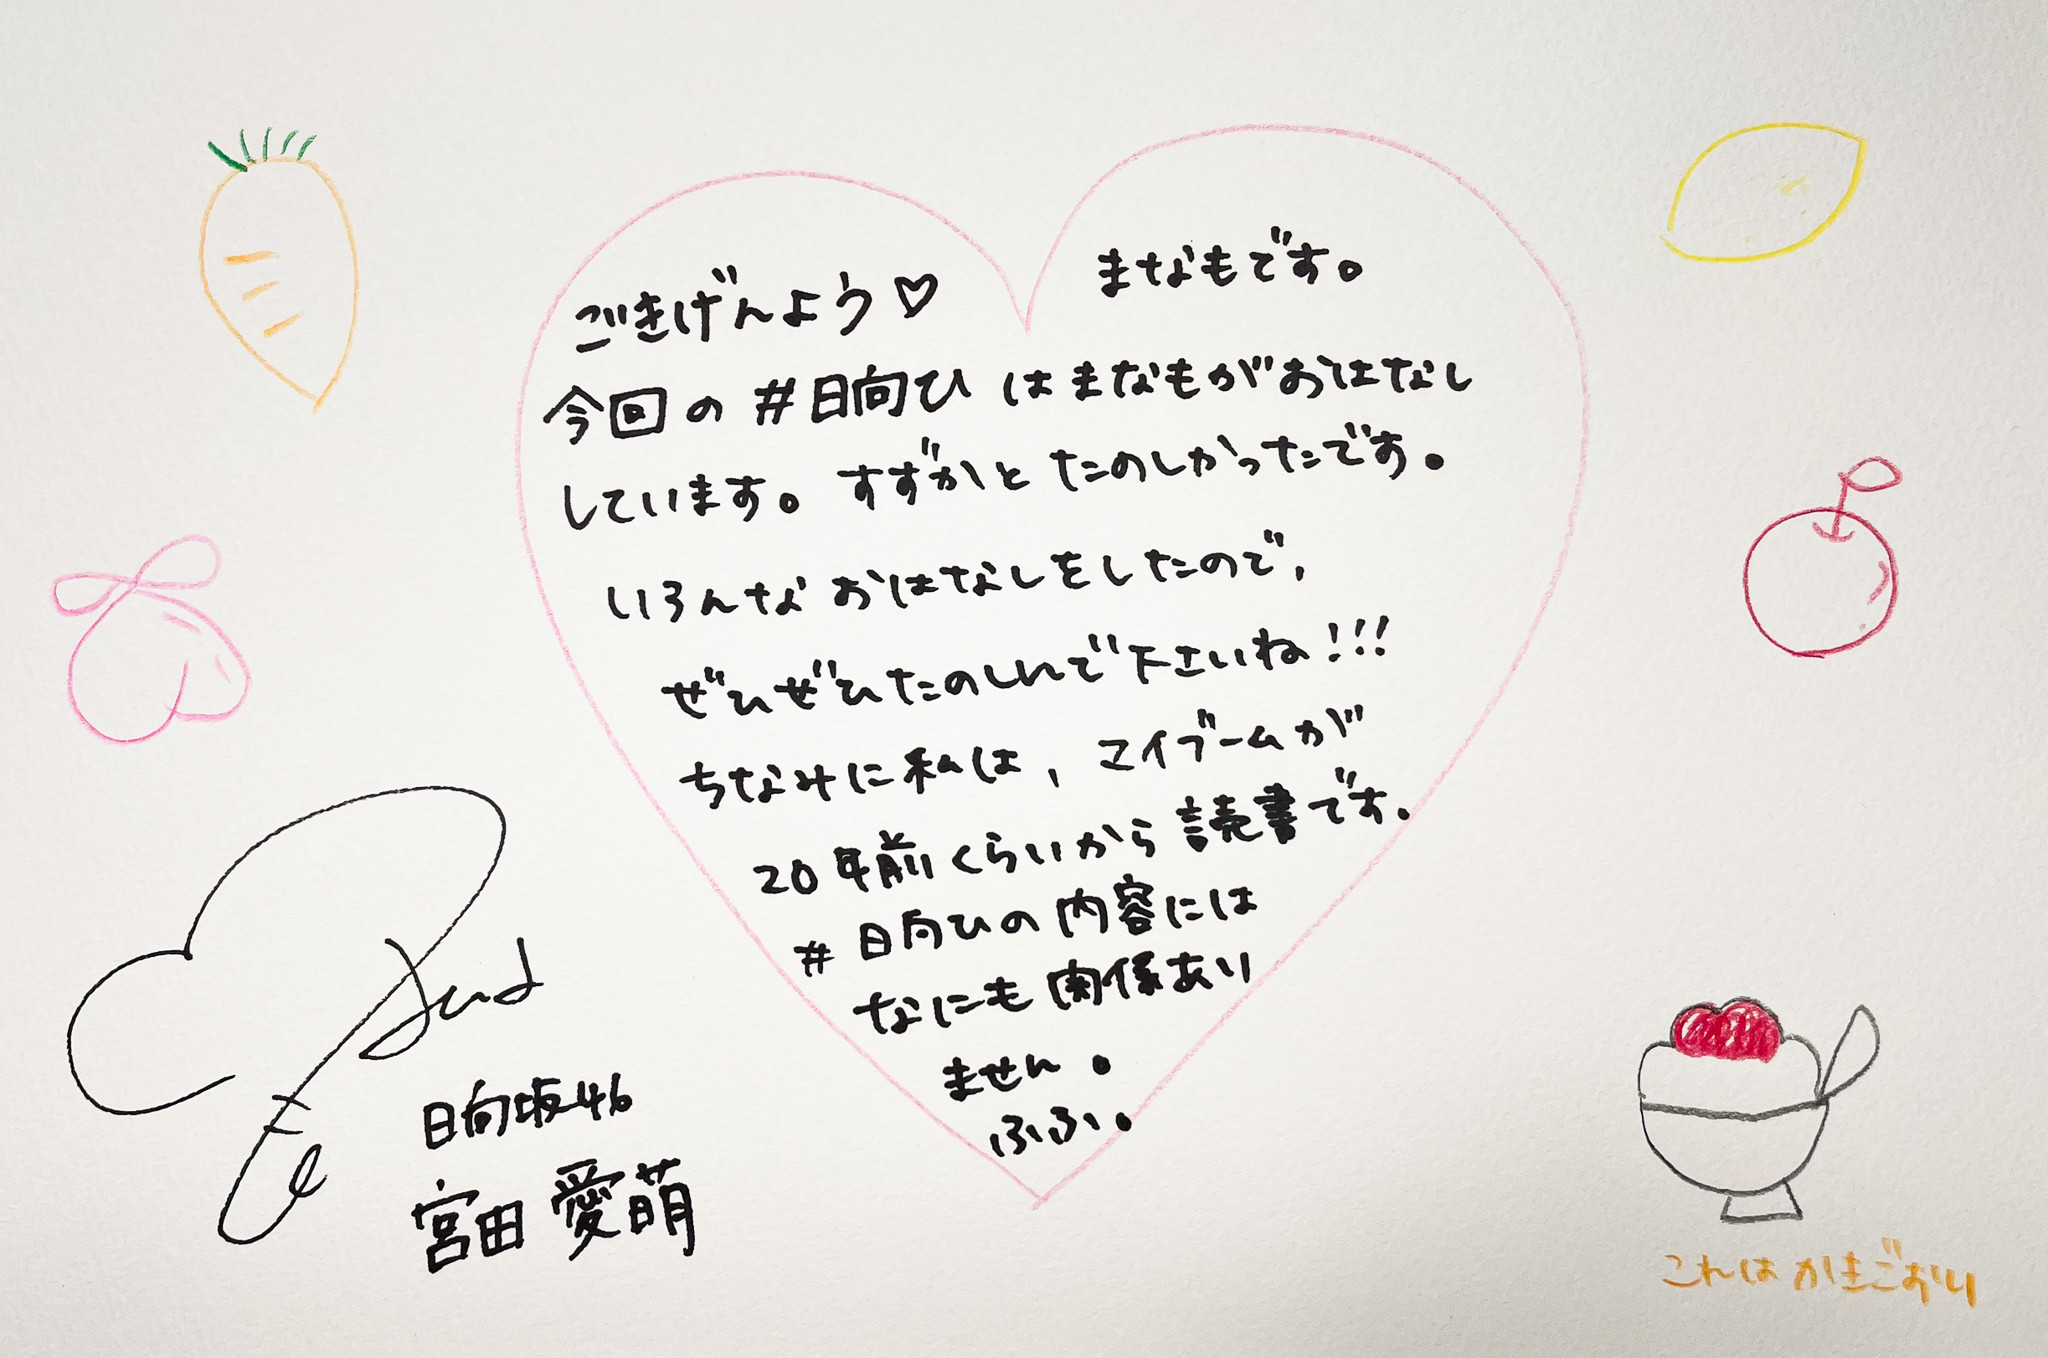 ごきげんよう♡ まなもです。
今回の #日向ひ はまなもがおはなし
しています。すずかと たのしかったです。
いろんな おはなしをしたので、
ぜひぜひたのしんで下さいね!!!
ちなみに私は、マイブームが
20年前くらいから読書です。
# 日向ひの内容には
なにも関係あり
ません。
ふふ。
日向坂46
宮田 愛萌
これは かきごおり